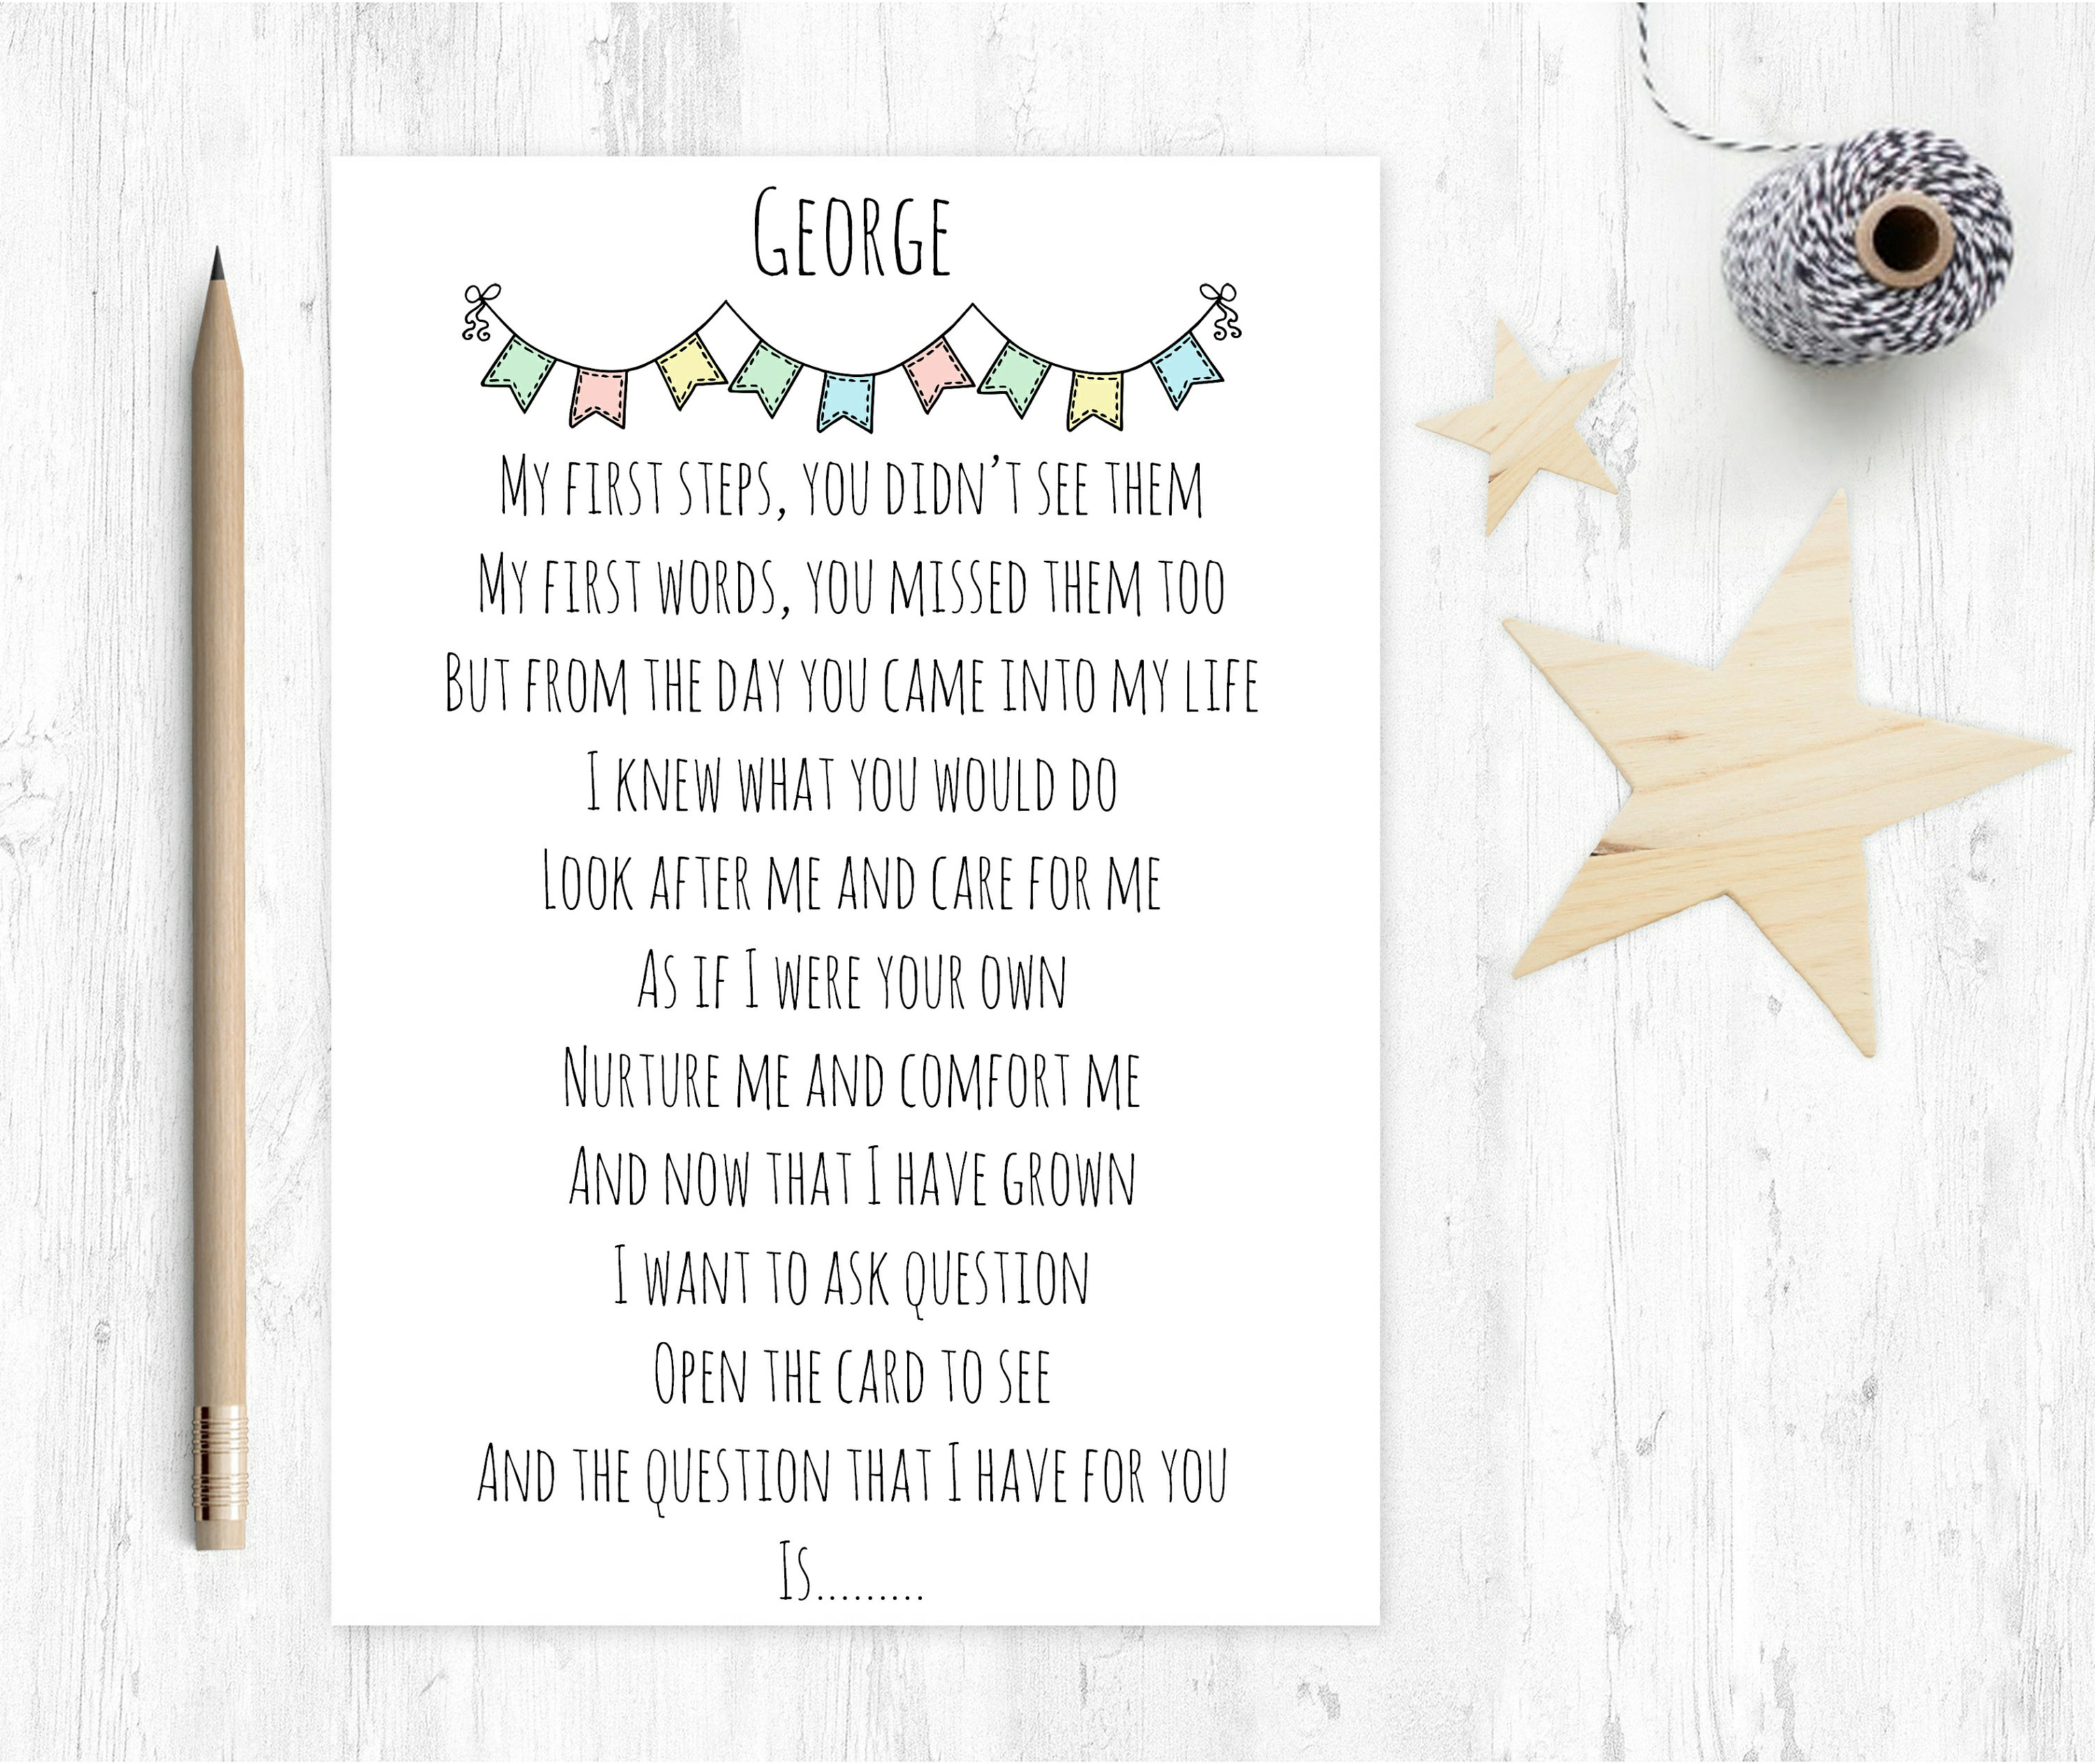 George
My first steps, you didn't see them
My first words, you missed them too
But from the day you came into my life
I knew what you would do
Look after me and care for me
As if I were your own
Nurture me and comfort me
And now that I have grown
I want to ask question
Open the card to see
And the question that I have for you
Is.........